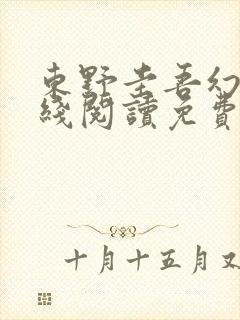 東野圭吾幻
綫閱讀免費
十月十五月又